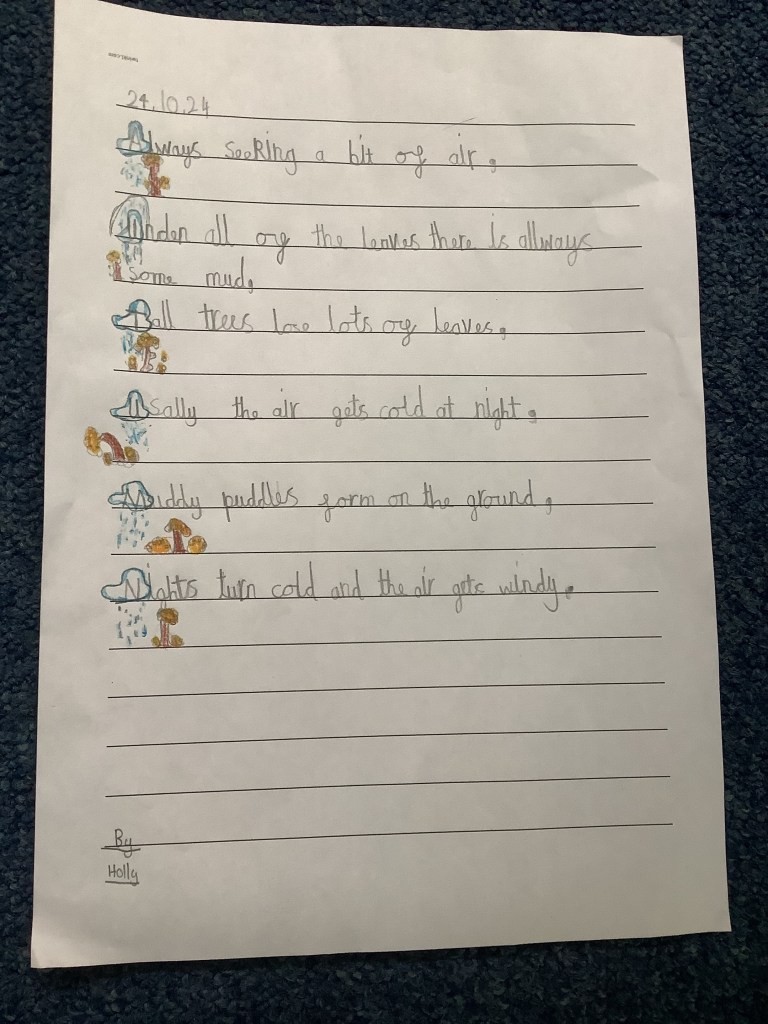 twinkl.com
24.10.24
Always seeking a bit of air.
Under all of the leaves there is allways
some mud.
Tall trees lose lots of leaves.
Usally the air gets cold at night.
Muddy puddles form on the ground.
Nights turn cold and the air gets windy.
By
Holly